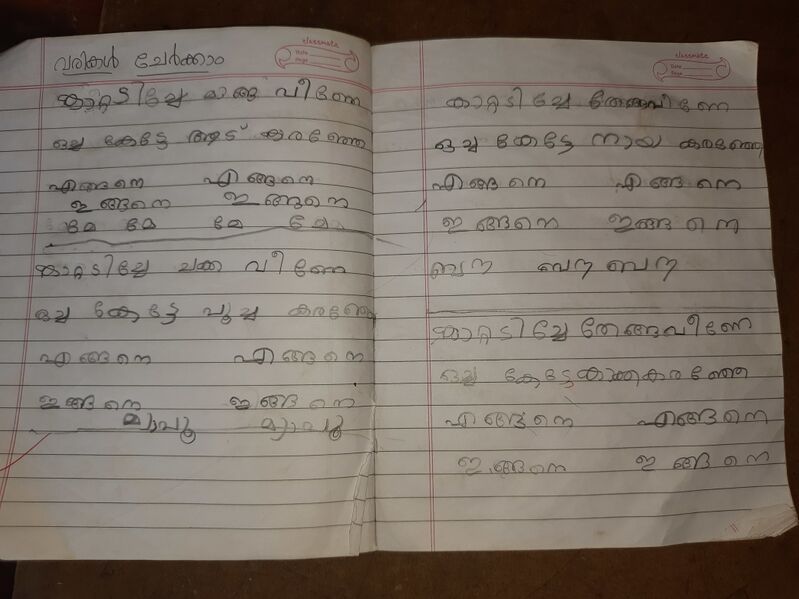 classmate
Date
Page
വരികൾ ചേർക്കാം
കാറ്റടിച്ചേ മാങ്ങ വീണേ
ഒച്ച കേട്ടേ ആട് കരഞ്ഞേ
എങ്ങനെ എങ്ങനെ
ഇങ്ങനെ ഇങ്ങനെ
മേ മേ മേ മേ
കാറ്റടിച്ചേ ചക്ക വീണേ
ഒച്ച കേട്ടേ പൂച്ച കരഞ്ഞേ
എങ്ങനെ എങ്ങനെ
ഇങ്ങനെ ഇങ്ങനെ
മ്യാവൂ മ്യാവൂ
classmate
Date
Page
കാറ്റടിച്ചേ തേങ്ങവീണേ
ഒച്ച കേട്ടേ നായ കരഞ്ഞേ
എങ്ങനെ എങ്ങനെ
ഇങ്ങനെ ഇങ്ങനെ
കാറ്റടിച്ചേ തേങ്ങവീണേ
ഒച്ച കേട്ടേ കാക്കകരഞ്ഞേ
എങ്ങനെ എങ്ങനെ
ഇങ്ങനെ ഇങ്ങനെ